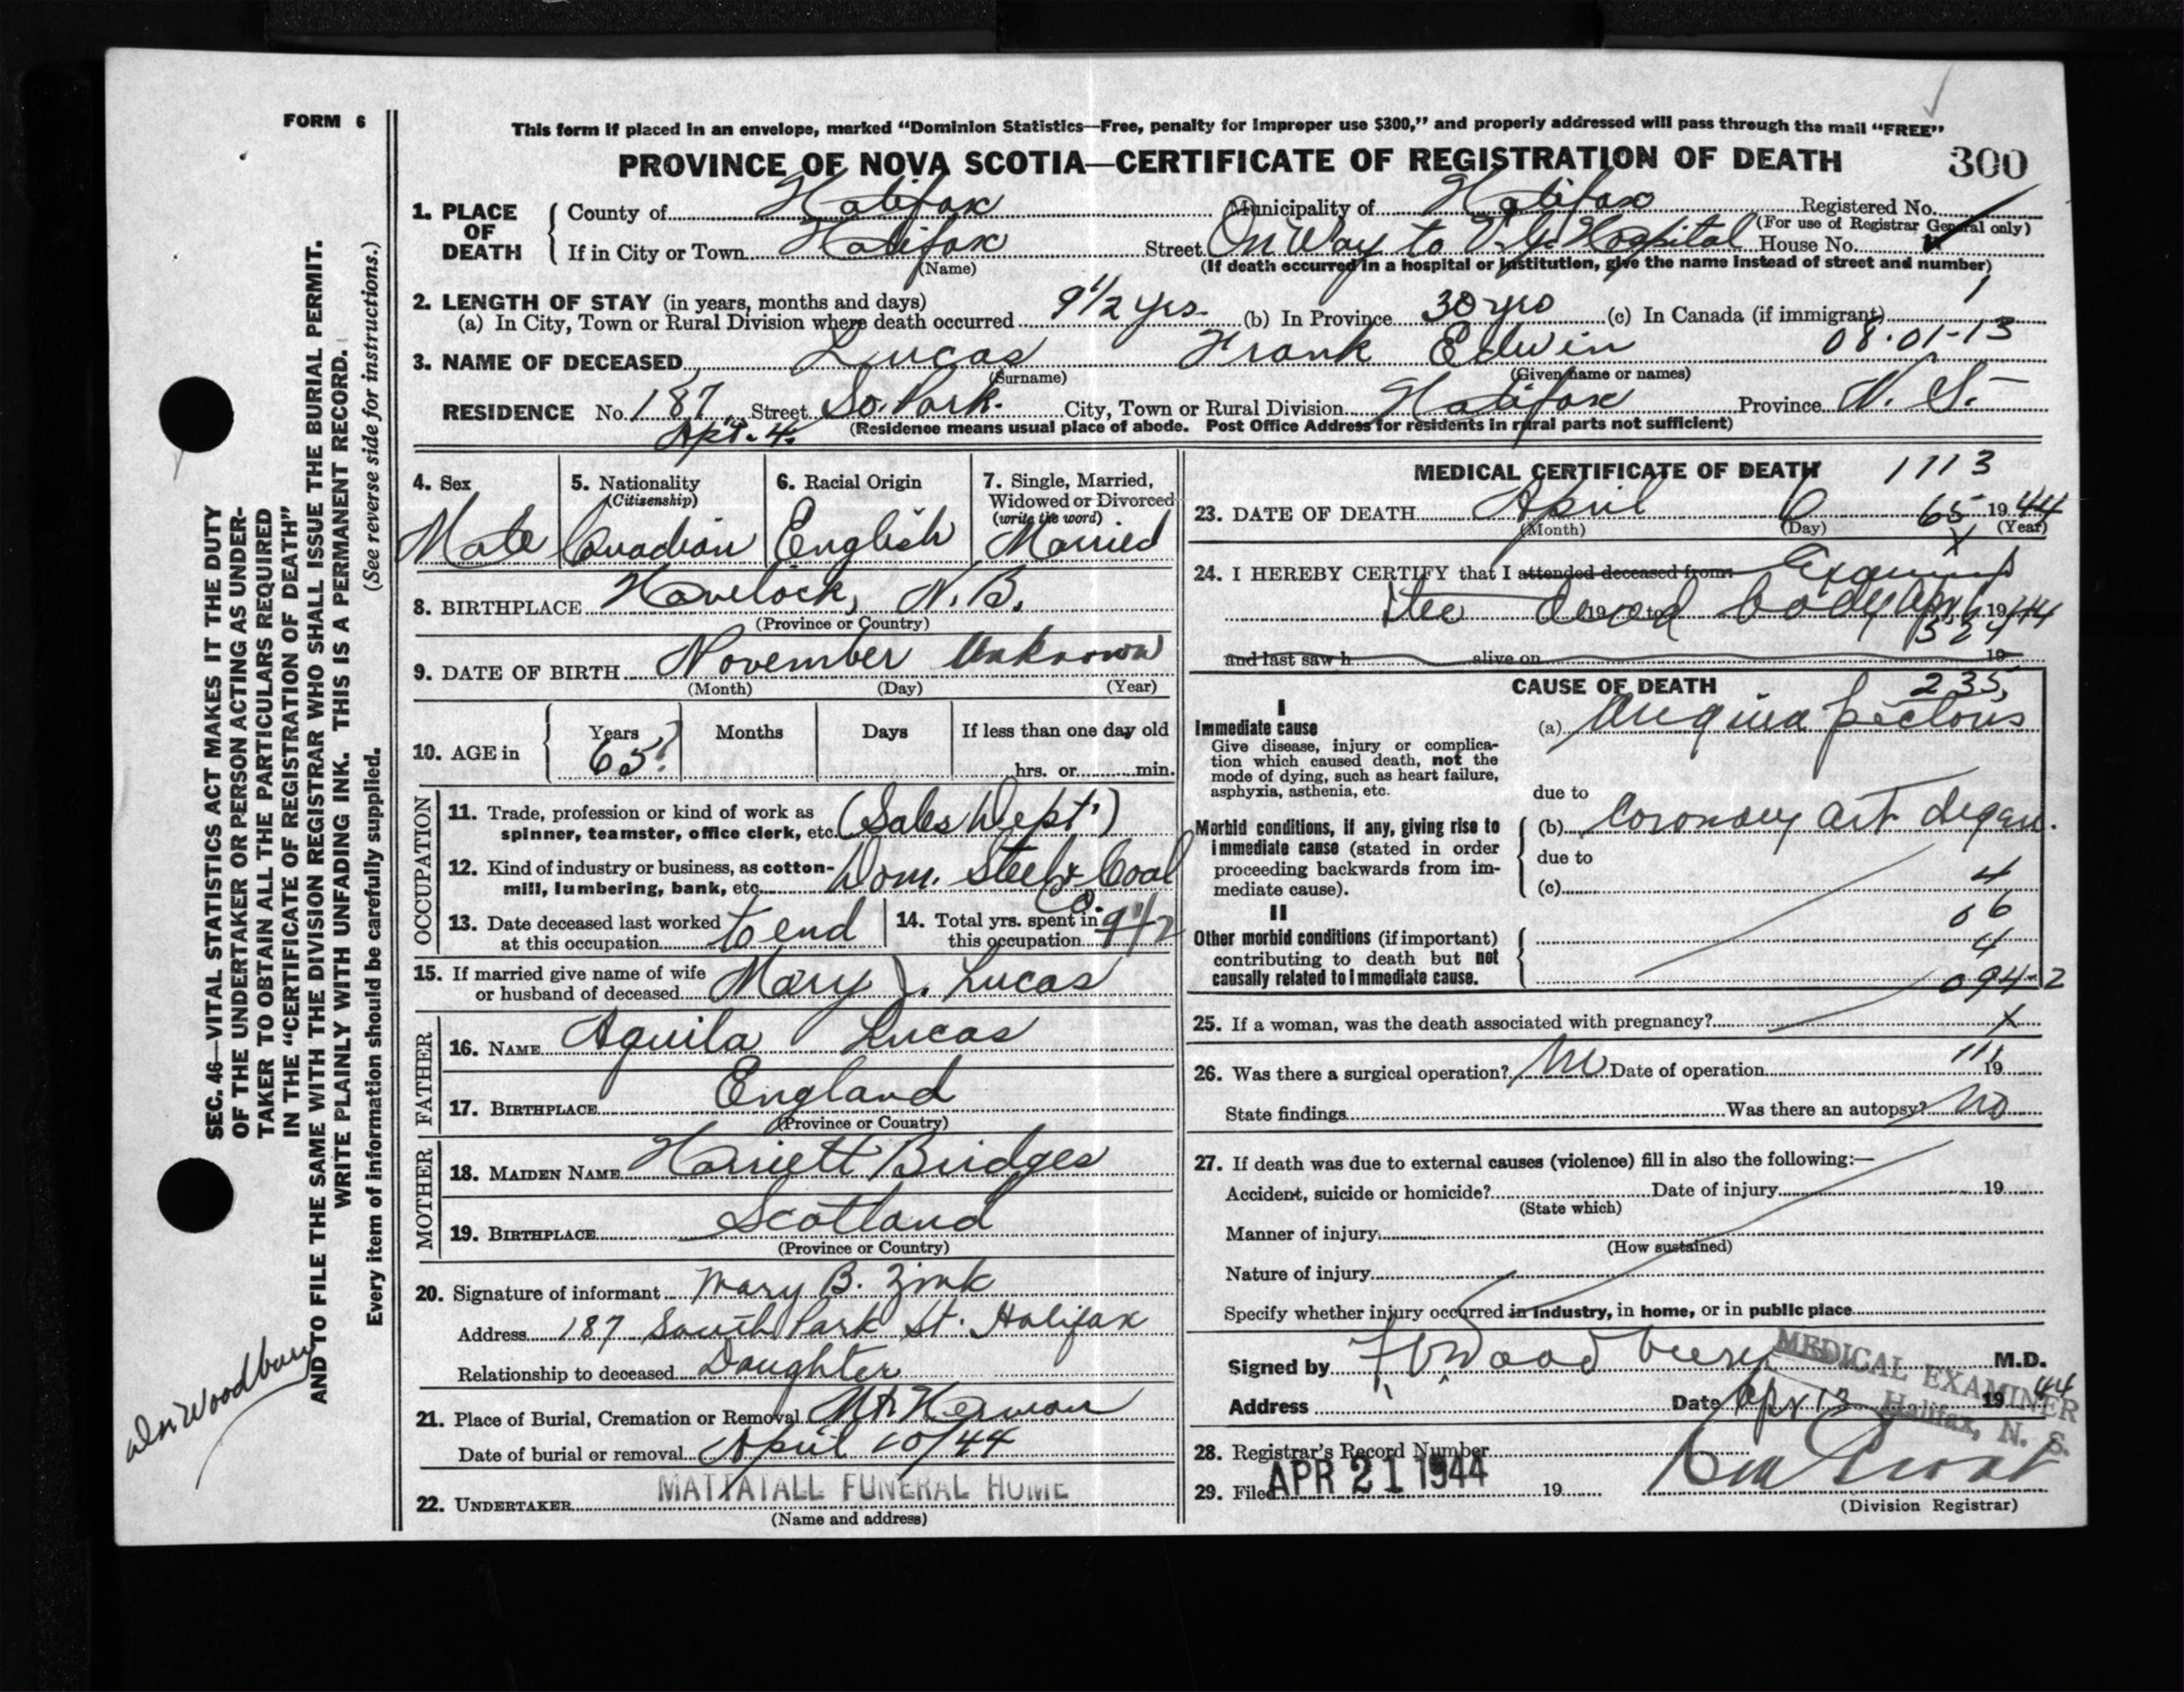 FORM 6
This form if placed in an envelope, marked “Dominion Statistics—Free, penalty for improper use $300,” and properly addressed will pass through the mail “FREE”
PROVINCE OF NOVA SCOTIA—CERTIFICATE OF REGISTRATION OF DEATH 300
1. PLACE OF DEATH County of Halifax Municipality of Halifax Registered No.
(For use of Registrar General only)
If in City or Town Halifax Street On Way to V.G. Hospital House No.
(Name) (If death occurred in a hospital or institution, give the name instead of street and number)
2. LENGTH OF STAY (in years, months and days)
(a) In City, Town or Rural Division where death occurred 9 1/2 yrs. (b) In Province 30 yrs (c) In Canada (if immigrant) 1
3. NAME OF DECEASED Lucas Frank Edwin 08-01-13
(Surname) (Given name or names)
RESIDENCE No. 187 Street So. Park. City, Town or Rural Division Halifax Province N. S.
Apt. 4. (Residence means usual place of abode. Post Office Address for residents in rural parts not sufficient)
4. Sex Male
5. Nationality (Citizenship) Canadian
6. Racial Origin English
7. Single, Married, Widowed or Divorced (write the word) Married
8. BIRTHPLACE Havelock, N.B.
(Province or Country)
9. DATE OF BIRTH November Unknown
(Month) (Day) (Year)
10. AGE in Years Months Days If less than one day old
65? hrs. or min.
OCCUPATION
11. Trade, profession or kind of work as spinner, teamster, office clerk, etc. (Sales Dept.)
12. Kind of industry or business, as cotton-mill, lumbering, bank, etc. Dom. Steel & Coal Co.
13. Date deceased last worked at this occupation to end
14. Total yrs. spent in this occupation 9 1/2
15. If married give name of wife or husband of deceased Mary J. Lucas
FATHER
16. NAME Aquila Lucas
17. BIRTHPLACE England
(Province or Country)
MOTHER
18. MAIDEN NAME Harriett Bridges
19. BIRTHPLACE Scotland
(Province or Country)
20. Signature of informant Mary B. Zink
Address 187 South Park St. Halifax
Relationship to deceased Daughter
21. Place of Burial, Cremation or Removal Mt. Hermon
Date of burial or removal April 10/44
22. UNDERTAKER MATTATALL FUNERAL HOME
(Name and address)
MEDICAL CERTIFICATE OF DEATH 1113
23. DATE OF DEATH April 6 65 1944
(Month) (Day) (Year)
24. I HEREBY CERTIFY that I attended deceased from: Examined
the dead body Apr 6 1944
and last saw h alive on 19
CAUSE OF DEATH 235
I
Immediate cause
Give disease, injury or complication which caused death, not the mode of dying, such as heart failure, asphyxia, asthenia, etc.
(a) Angina pectoris
due to
Morbid conditions, if any, giving rise to immediate cause (stated in order proceeding backwards from immediate cause).
(b) Coronary art degen.
due to
(c) 4
II
Other morbid conditions (if important) contributing to death but not causally related to immediate cause.
06
4
094-2
25. If a woman, was the death associated with pregnancy? X
26. Was there a surgical operation? No Date of operation 19
State findings Was there an autopsy? No
27. If death was due to external causes (violence) fill in also the following:—
Accident, suicide or homicide? Date of injury 19
(State which)
Manner of injury
(How sustained)
Nature of injury
Specify whether injury occurred in industry, in home, or in public place
Signed by Woodbury M.D.
MEDICAL EXAMINER
Halifax, N. S.
Address Date Apr 13 1944
28. Registrar's Record Number
29. Filed APR 21 1944 19
(Division Registrar)
SEC. 46—VITAL STATISTICS ACT MAKES IT THE DUTY
OF THE UNDERTAKER OR PERSON ACTING AS UNDER-
TAKER TO OBTAIN ALL THE PARTICULARS REQUIRED
IN THE “CERTIFICATE OF REGISTRATION OF DEATH”
AND TO FILE THE SAME WITH THE DIVISION REGISTRAR WHO SHALL ISSUE THE BURIAL PERMIT.
WRITE PLAINLY WITH UNFADING INK. THIS IS A PERMANENT RECORD.
Every item of information should be carefully supplied. (See reverse side for instructions.)
Woodbury